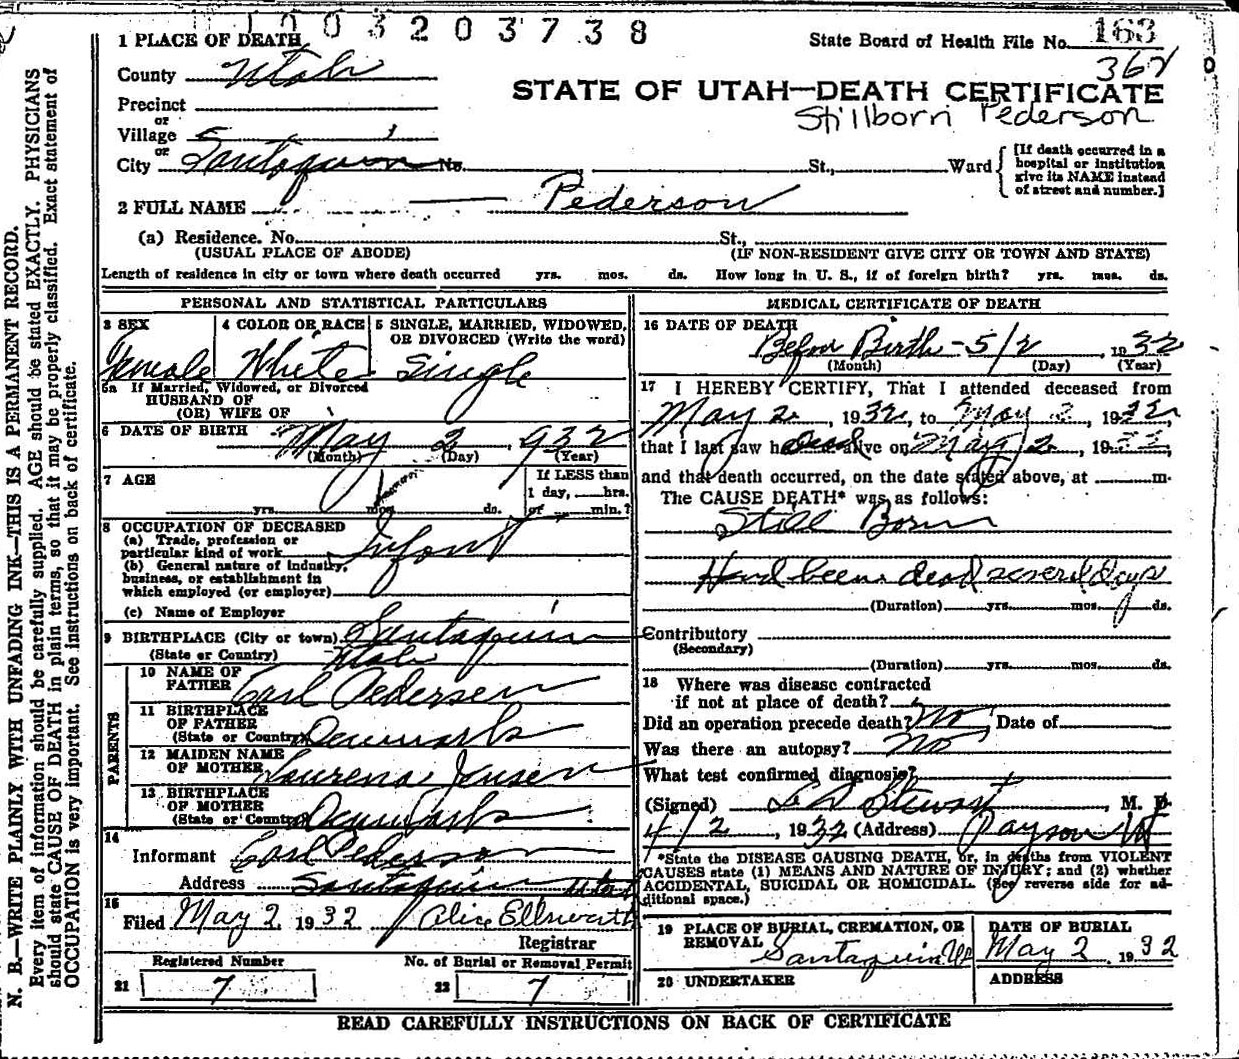 1003203738
1 PLACE OF DEATH
State Board of Health File No. 163
County Utah
362
Precinct
STATE OF UTAH—DEATH CERTIFICATE
or
Stillborn Pederson
Village
or
City Santaquin No. St., Ward
[If death occurred in a
hospital or institution
give its NAME instead
of street and number.]
2 FULL NAME Pederson
(a) Residence. No. St.,
(USUAL PLACE OF ABODE) (IF NON-RESIDENT GIVE CITY OR TOWN AND STATE)
Length of residence in city or town where death occurred yrs. mos. ds. How long in U. S., if of foreign birth? yrs. mos. ds.
PERSONAL AND STATISTICAL PARTICULARS
3 SEX 4 COLOR OR RACE 5 SINGLE, MARRIED, WIDOWED,
OR DIVORCED (Write the word)
Female White Single
5a If Married, Widowed, or Divorced
HUSBAND OF
(OR) WIFE OF
6 DATE OF BIRTH May 2, 932
(Month) (Day) (Year)
7 AGE If LESS than
1 day, hrs.
yrs. mos. ds. or min.?
8 OCCUPATION OF DECEASED
(a) Trade, profession or
particular kind of work Infant
(b) General nature of industry,
business, or establishment in
which employed (or employer)
(c) Name of Employer
9 BIRTHPLACE (City or town) Santaquin
(State or Country) Utah
PARENTS
10 NAME OF
FATHER Carl Pedersen
11 BIRTHPLACE
OF FATHER
(State or Country) Denmark
12 MAIDEN NAME
OF MOTHER Laurena Jensen
13 BIRTHPLACE
OF MOTHER
(State or Country) Denmark
14
Informant Carl Pederson
Address Santaquin Utah
15
Filed May 2 1932 Alice Ellsworth
Registrar
Registered Number No. of Burial or Removal Permit
21 7 22 7
MEDICAL CERTIFICATE OF DEATH
16 DATE OF DEATH
Before Birth - 5/2, 1932
(Month) (Day) (Year)
17 I HEREBY CERTIFY, That I attended deceased from
May 2, 1932, to May 2, 1932,
that I last saw h dead alive on May 2, 1932,
and that death occurred, on the date stated above, at m.
The CAUSE DEATH* was as follows:
Still Born
Had been dead several days
(Duration) yrs. mos. ds.
Contributory
(Secondary)
(Duration) yrs. mos. ds.
18 Where was disease contracted
if not at place of death?
Did an operation precede death? No Date of
Was there an autopsy? No
What test confirmed diagnosis?
(Signed) Stewart, M. D.
4/2, 1932 (Address) Payson Ut
*State the DISEASE CAUSING DEATH, or, in deaths from VIOLENT
CAUSES state (1) MEANS AND NATURE OF INJURY; and (2) whether
ACCIDENTAL, SUICIDAL OR HOMICIDAL. (See reverse side for ad-
ditional space.)
19 PLACE OF BURIAL, CREMATION, OR
REMOVAL Santaquin Ut
DATE OF BURIAL
May 2, 1932
20 UNDERTAKER ADDRESS
READ CAREFULLY INSTRUCTIONS ON BACK OF CERTIFICATE
N. B.—WRITE PLAINLY WITH UNFADING INK—THIS IS A PERMANENT RECORD.
Every item of information should be carefully supplied. AGE should be stated EXACTLY. PHYSICIANS
should state CAUSE OF DEATH in plain terms, so that it may be properly classified. Exact statement of
OCCUPATION is very important. See instructions on back of certificate.